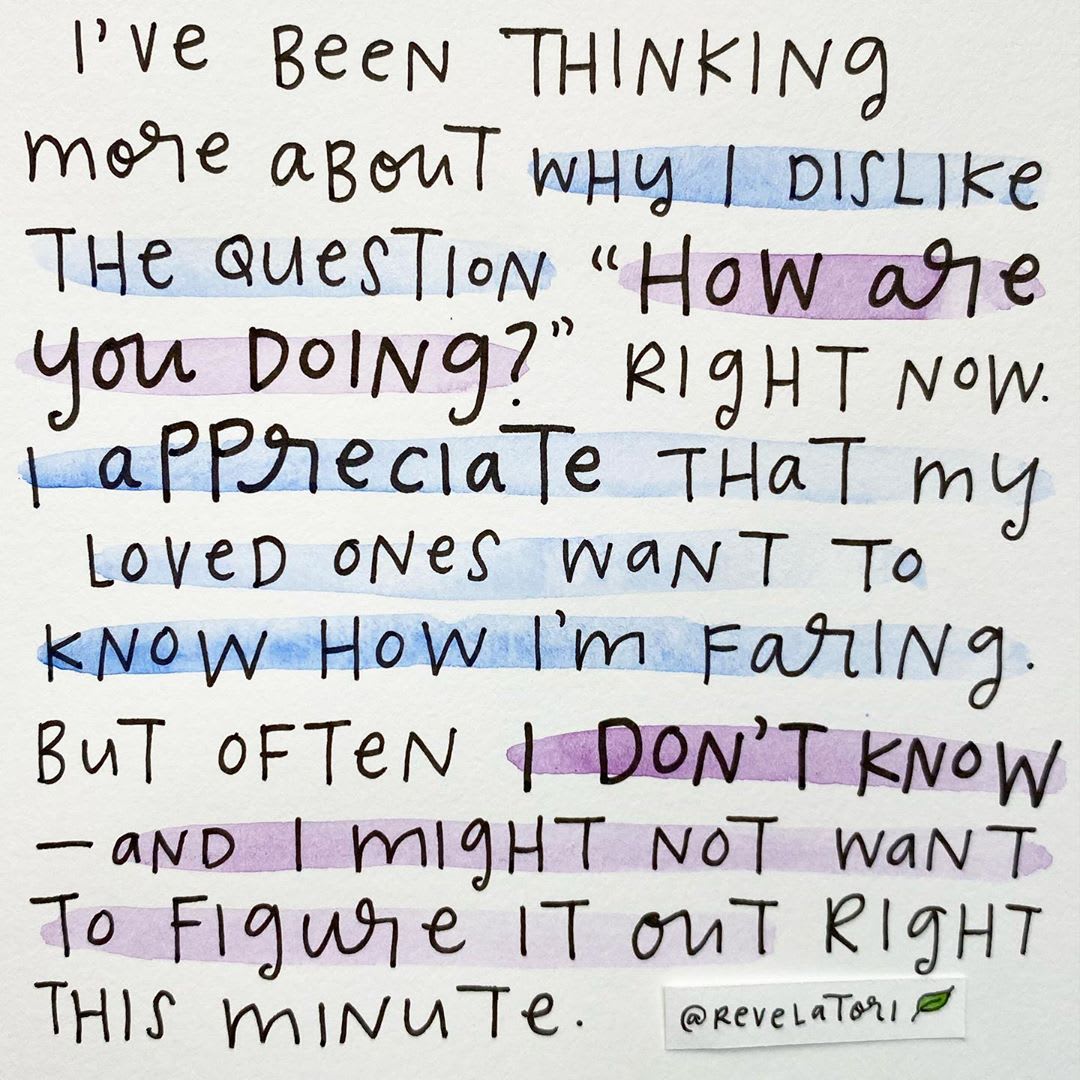 I'VE BEEN THINKING
MORE ABOUT WHY I DISLIKE
THE QUESTION “HOW ARE
YOU DOING?” RIGHT NOW.
I APPRECIATE THAT MY
LOVED ONES WANT TO
KNOW HOW I'M FARING.
BUT OFTEN I DON'T KNOW
—AND I MIGHT NOT WANT
TO FIGURE IT OUT RIGHT
THIS MINUTE.
@REVELATORI